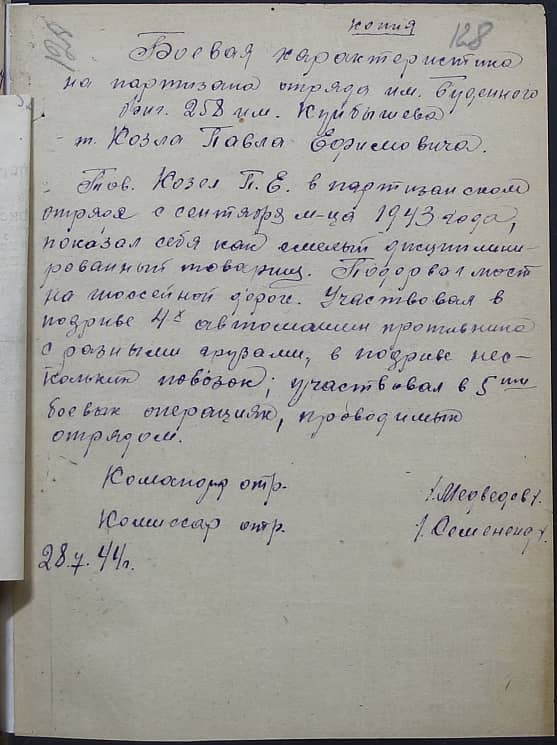 копия
128
Боевая характеристика
на партизана отряда им. Буденного
бриг. 258 им. Куйбышева
т. Козла Павла Ефимовича.
Тов. Козел П. Е. в партизанском
отряде с сентября м-ца 1943 года,
показал себя как смелый дисциплини-
рованный товарищ. Подорвал мост
на шоссейной дороге. Участвовал в
подриве 4х автомашин противника
с разными грузами, в подриве нес-
кольких повозок; участвовал в 5ти
боевых операциях, проводимых
отрядом.
Командир отр. /Медведев/.
Комиссар отр. /Семененко/.
28.7.44г.